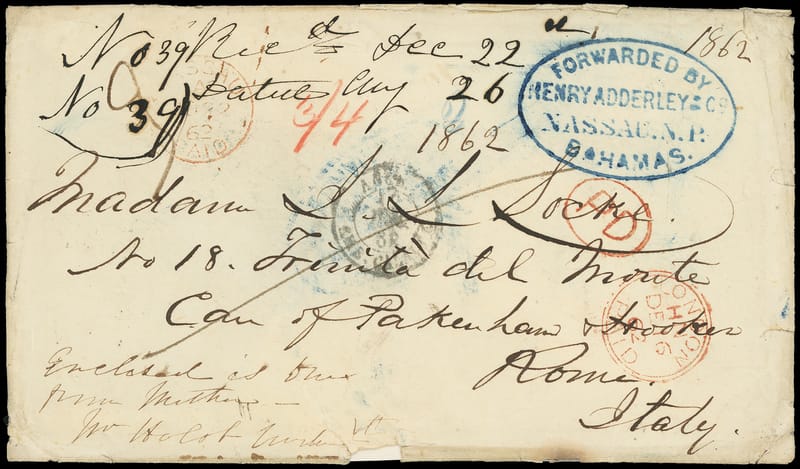 No 39 Rec'd Dec 22nd 1862
No 39 Dated Aug 26
1862
3/4
FORWARDED BY
HENRY ADDERLEY & CO
NASSAU. N.P.
BAHAMAS.
Madam S. L Locke.
PD
No 18. Trinita del Monte
Care of Pakenham & Hooker
LONDON
DE
62
PAID
Rome.
Italy.
Enclosed is one
from Mother